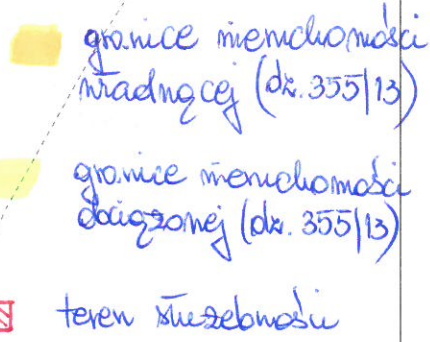 granice nieruchomości
władnącej (dz. 355/13)
granice nieruchomości
obciążonej (dz. 355/13)
teren służebności